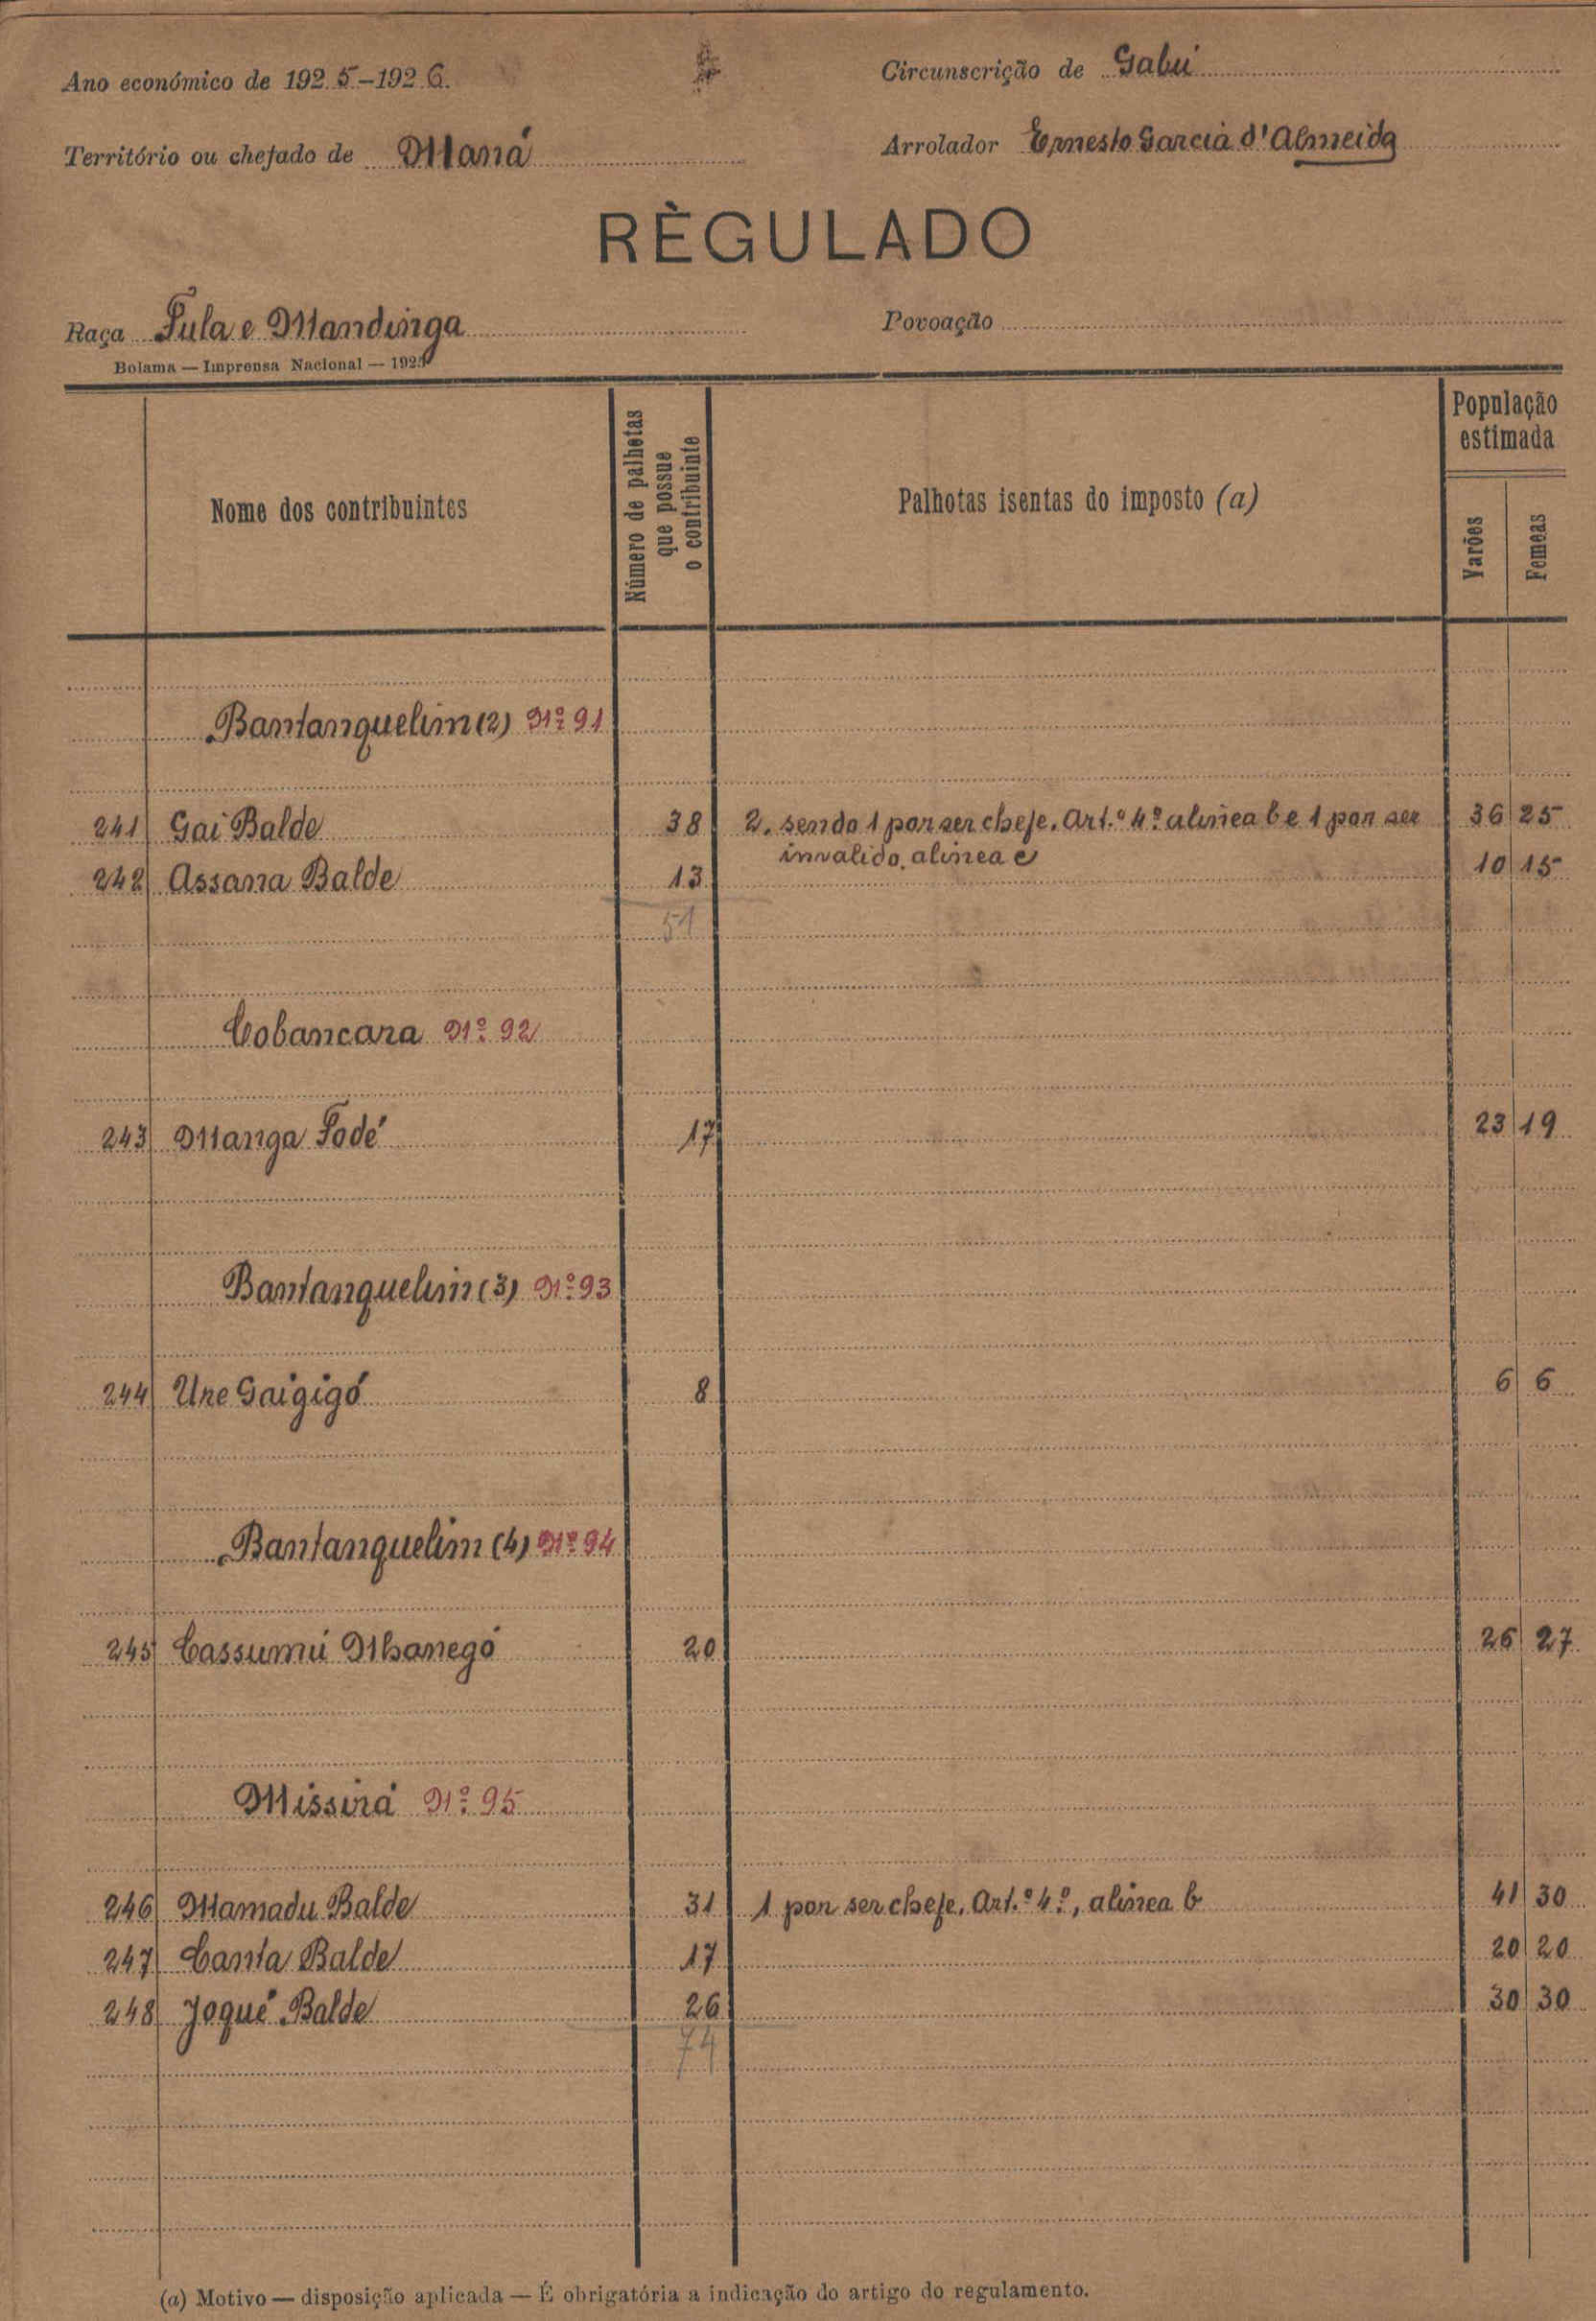 Ano económico de 1925-1926.
Circunscrição de Gabú
Território ou chefado de Maná
Arrolador Ernesto Garcia d'Almeida
RÈGULADO
Raça Fula e Mandinga
Povoação
Bolama — Imprensa Nacional — 1925
Nome dos contribuintes
Número de palhotas que possue o contribuinte
Palhotas isentas do imposto (a)
População estimada
Varões
Femeas
Bantanquelim (2) Nº 91
241 Gai Balde 38 2, sendo 1 por ser chefe, Art.º 4º alinea b e 1 por ser 36 25
invalido, alinea e
242 Assana Balde 13 10 15
51
Cobancara Nº 92
243 Manga Fodé 17 23 19
Bantanquelim (3) Nº 93
244 Une Gaigigó 8 6 6
Bantanquelim (4) Nº 94
245 Cassumú Nhanegó 20 26 27
Missirá Nº 95
246 Mamadu Balde 31 1 por ser chefe, Art.º 4º, alinea b 41 30
247 Canta Balde 17 20 20
248 Joqué Balde 26 30 30
74
(a) Motivo — disposição aplicada — É obrigatória a indicação do artigo do regulamento.